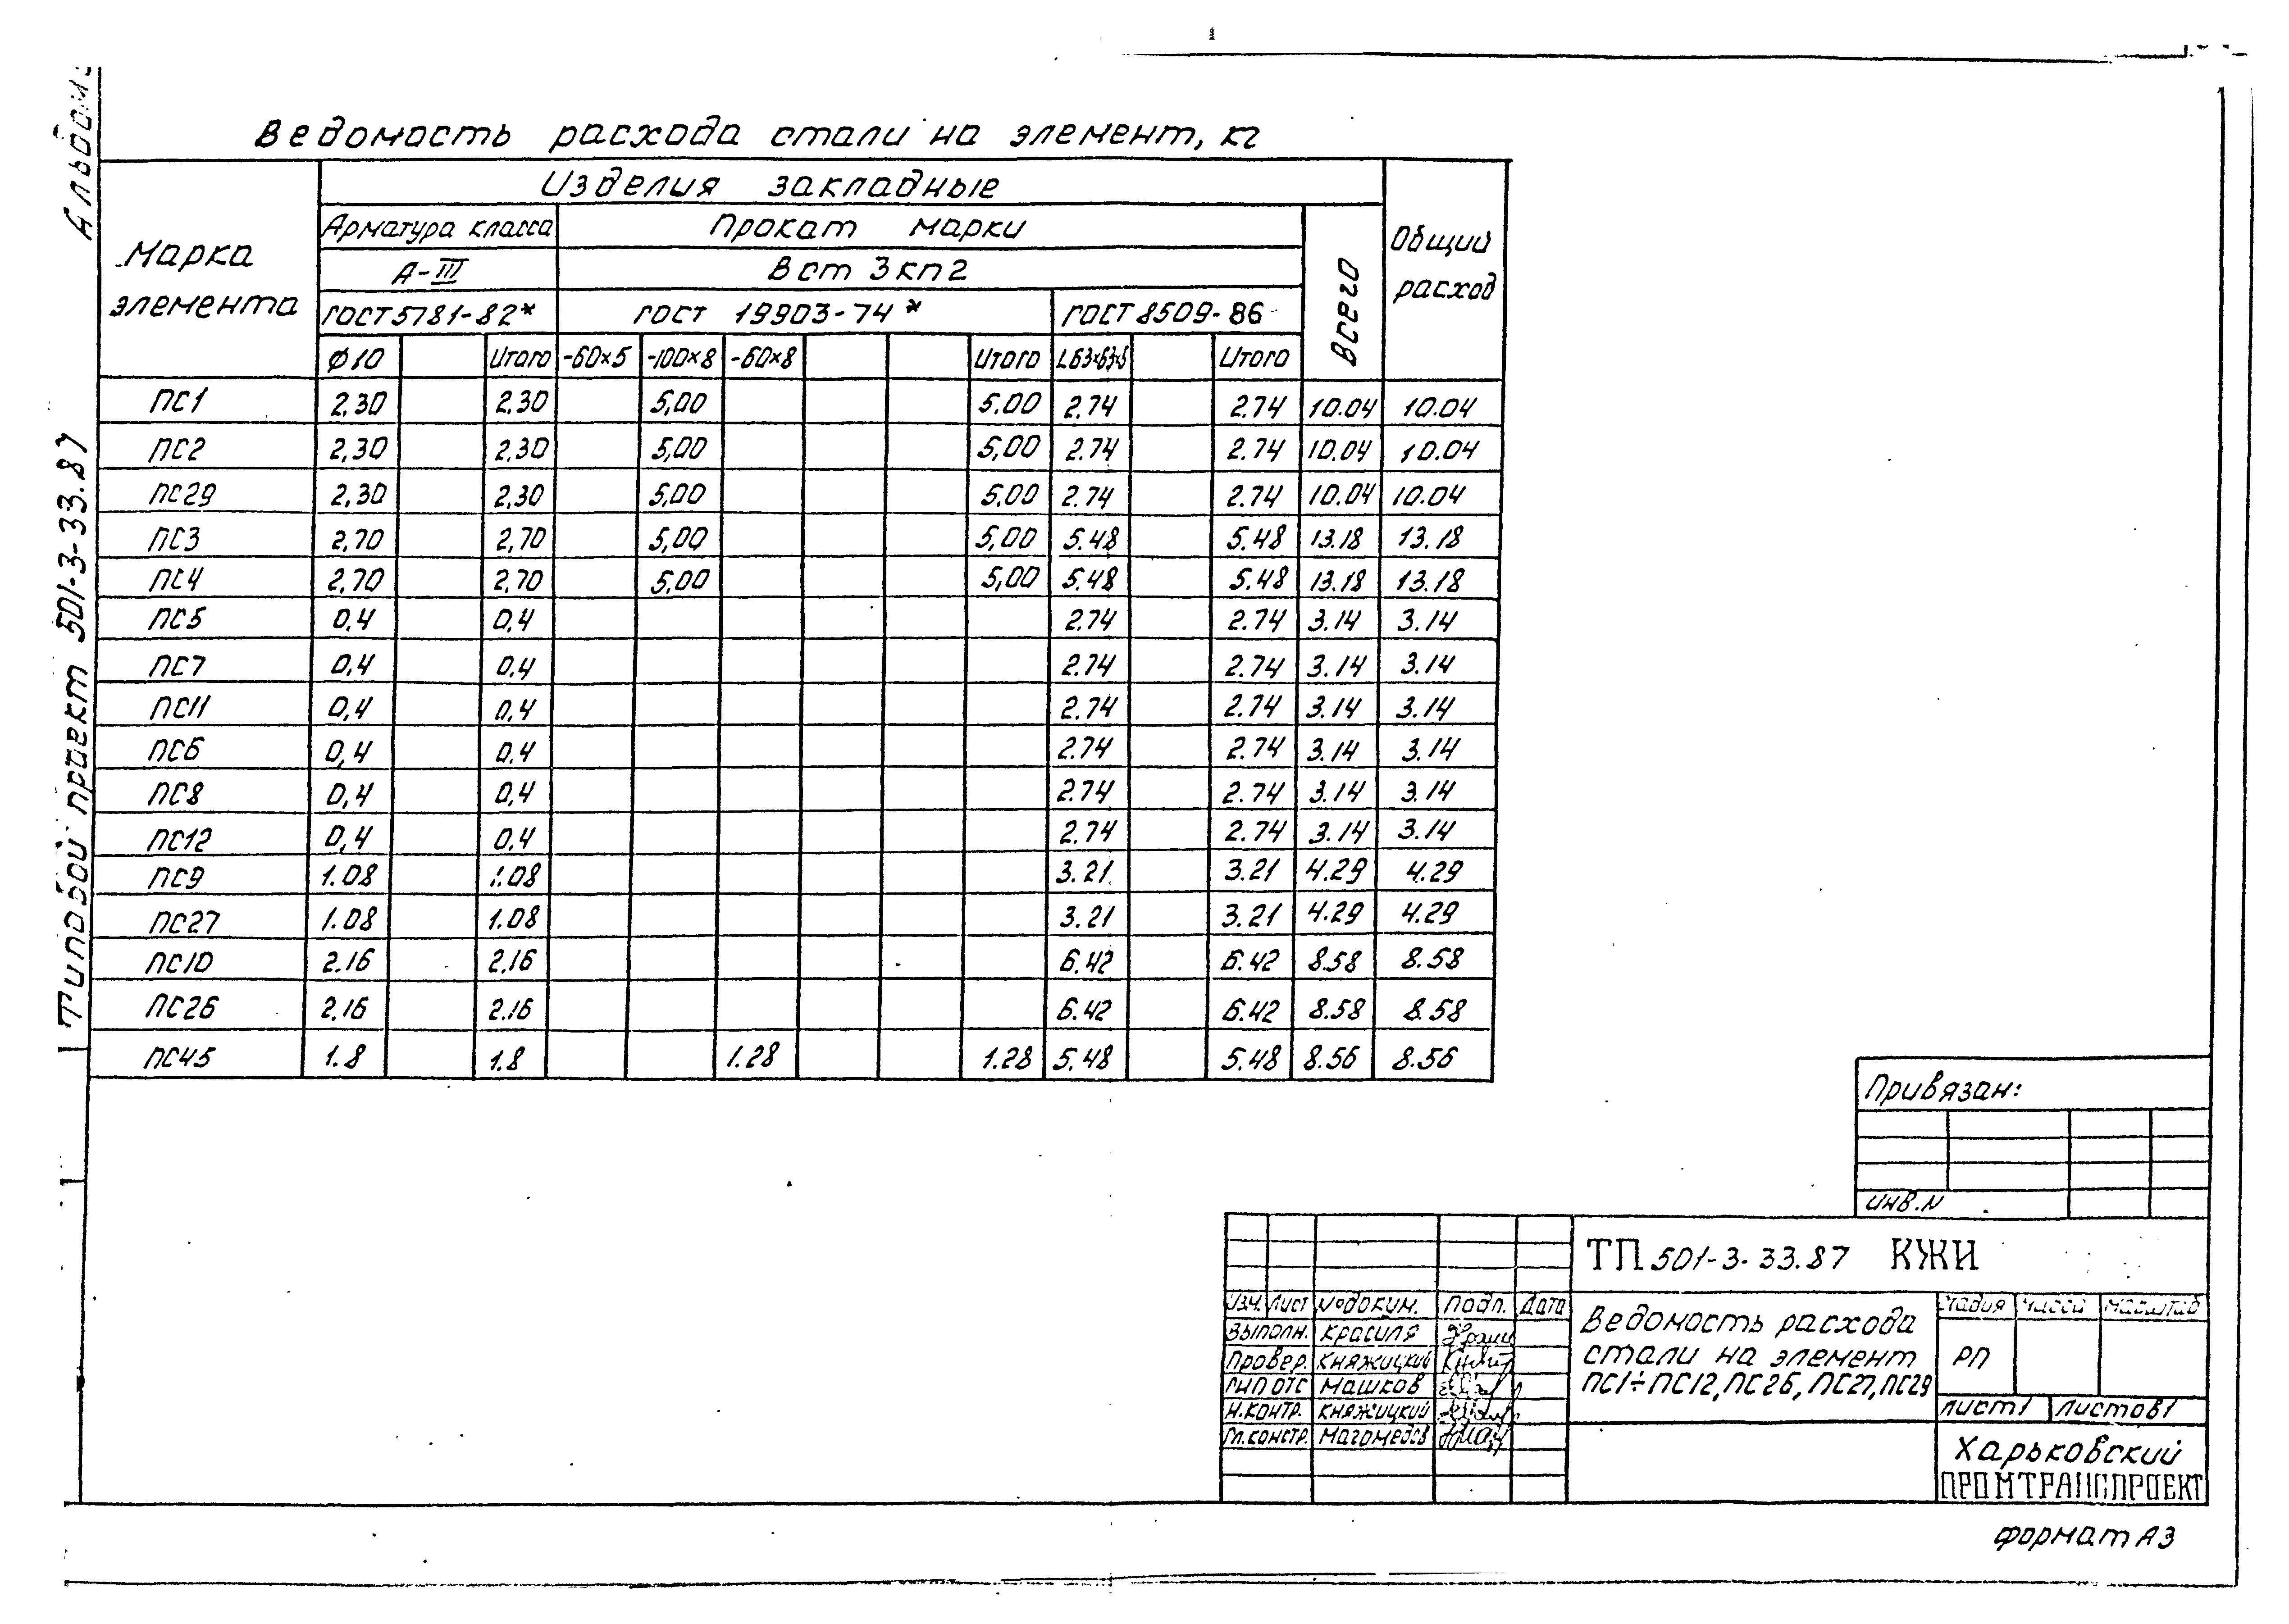 Альбом
Типовой проект 501-3-33.87
Ведомость расхода стали на элемент, кг
Марка элемента
Изделия закладные
Общий расход
Арматура класса
Прокат марки
Всего
А-III
Вст 3кп2
ГОСТ 5781-82*
ГОСТ 19903-74*
ГОСТ 8509-86
Ø10 Итого -60×5 -100×8 -60×8 Итого L63×63×5 Итого
ПС1 2,30 2,30 5,00 5,00 2.74 2.74 10.04 10.04
ПС2 2,30 2,30 5,00 5,00 2.74 2.74 10.04 10.04
ПС29 2,30 2,30 5,00 5,00 2.74 2.74 10.04 10.04
ПС3 2,70 2,70 5,00 5,00 5.48 5.48 13.18 13.18
ПС4 2,70 2,70 5,00 5,00 5.48 5.48 13.18 13.18
ПС5 0,4 0,4 2.74 2.74 3.14 3.14
ПС7 0,4 0,4 2.74 2.74 3.14 3.14
ПС11 0,4 0,4 2.74 2.74 3.14 3.14
ПС6 0,4 0,4 2.74 2.74 3.14 3.14
ПС8 0,4 0,4 2.74 2.74 3.14 3.14
ПС12 0,4 0,4 2.74 2.74 3.14 3.14
ПС9 1.08 1.08 3.21 3.21 4.29 4.29
ПС27 1.08 1.08 3.21 3.21 4.29 4.29
ПС10 2.16 2.16 6.42 6.42 8.58 8.58
ПС26 2.16 2.16 6.42 6.42 8.58 8.58
ПС45 1.8 1.8 1.28 1.28 5.48 5.48 8.56 8.56
Привязан:
Инв.N
ТП 501-3-33.87 КЖИ
Изм. Лист №докум. Подп. Дата
Выполн. Красиля
Провер. Княжицкий
ГИП ОТС Машков
Н.контр. Княжицкий
Гл.констр. Магомедов
Ведомость расхода
стали на элемент
ПС1÷ПС12, ПС26, ПС27, ПС29
Стадия Масса Масштаб
РП
Лист 1 Листов 1
Харьковский
ПРОМТРАНСПРОЕКТ
Формат А3